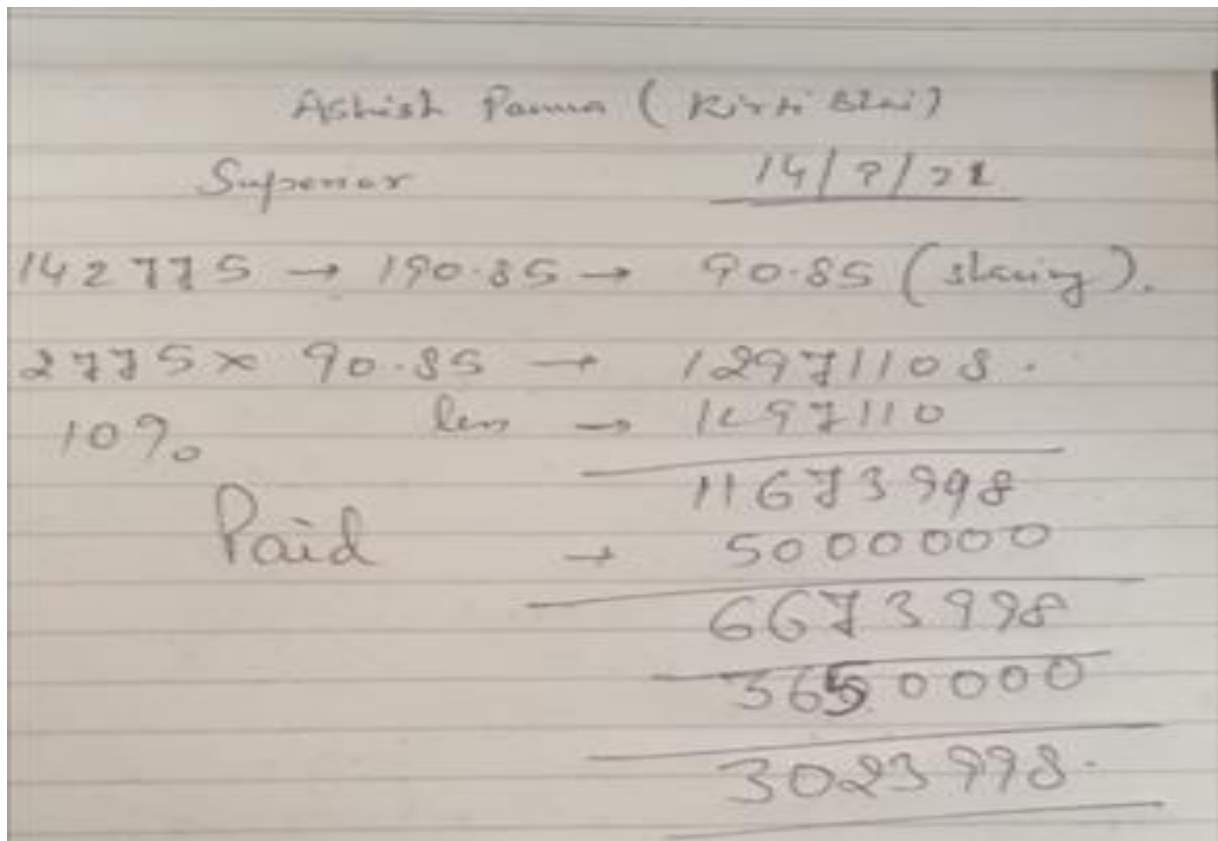 Ashish Parmar (Kirti Bhai)
Superior 14/7/21
142775 → 190.85 → 90.85 (sharing).
2775 x 90.85 → 12971108.
10% less → 1297110
11673998
Paid → 5000000
6673998
3650000
3023998.